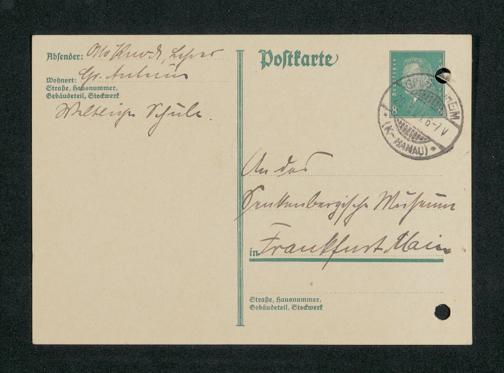 Absender: Otto Lehrer
Wohnort:
Straße, Hausnummer,
Gebäudeteil, Stockwerk
Schule.
Postkarte
8
6-7 V
(K-HANAU)
An das
Senkenbergische Museum
in Frankfurt Main
Straße, Hausnummer,
Gebäudeteil, Stockwerk